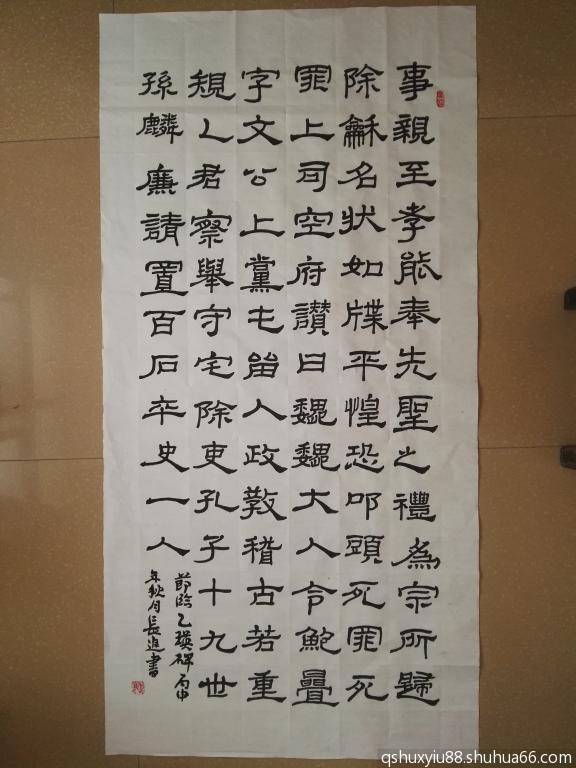 事親至孝能奉先聖之禮為宗所歸
除龢名狀如牒平惶恐叩頭死罪死
罪上司空府讃曰巍巍大人令鮑疊
字文公上黨屯留人政教稽古若重
規乚君察舉守宅除吏孔子十九世
孫麟廉請置百石卒史一人
節臨乙瑛碑丙申
年秋月長進書
qshuxyiu88.shuhua66.com